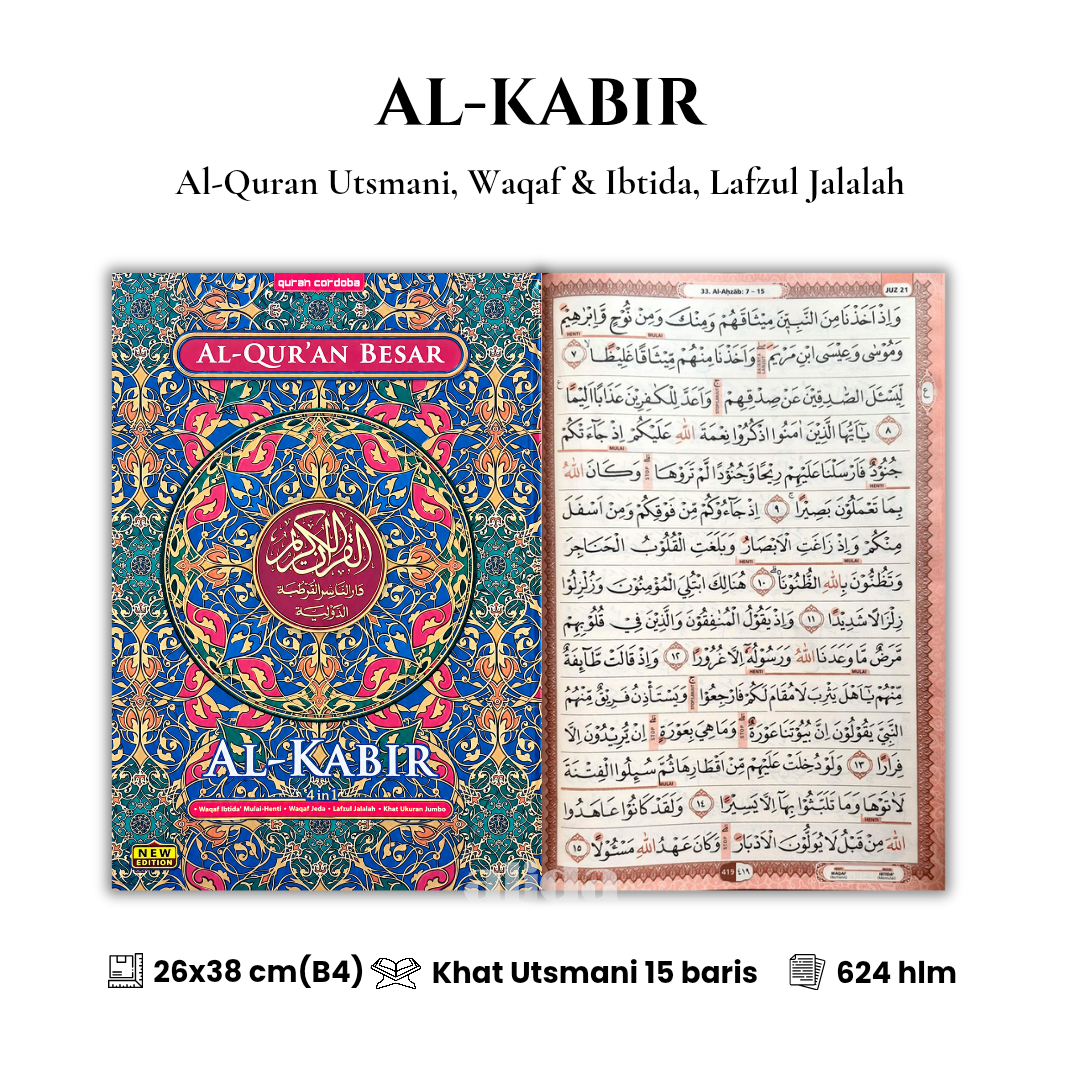 AL-KABIR
Al-Quran Utsmani, Waqaf & Ibtida, Lafzul Jalalah
quran cordoba
AL-QUR'AN BESAR
القرآن الكريم
دار الناشر القرطبة
الدولية
AL-KABIR
4 in 1
• Waqaf Ibtida' Mulai-Henti • Waqaf Jeda • Lafzul Jalalah • Khat Ukuran Jumbo
NEW
EDITION
33. Al-Aḥzāb: 7 – 15
JUZ 21
وَاِذْ اَخَذْنَا مِنَ النَّبِيّٖنَ مِيْثَاقَهُمْ وَمِنْكَ وَمِنْ نُّوْحٍ وَّاِبْرٰهِيْمَ
HENTI MULAI
وَمُوْسٰى وَعِيْسَى ابْنِ مَرْيَمَ ۖ وَاَخَذْنَا مِنْهُمْ مِّيْثَاقًا غَلِيْظًا ۙ ٧
لِّيَسْـَٔلَ الصّٰدِقِيْنَ عَنْ صِدْقِهِمْ ۚ وَاَعَدَّ لِلْكٰفِرِيْنَ عَذَابًا اَلِيْمًا ࣖ
ع
٨ يٰٓاَيُّهَا الَّذِيْنَ اٰمَنُوا اذْكُرُوْا نِعْمَةَ اللّٰهِ عَلَيْكُمْ اِذْ جَاۤءَتْكُمْ
MULAI
جُنُوْدٌ فَاَرْسَلْنَا عَلَيْهِمْ رِيْحًا وَّجُنُوْدًا لَّمْ تَرَوْهَا ۗ وَكَانَ اللّٰهُ
HENTI
بِمَا تَعْمَلُوْنَ بَصِيْرًا ۚ ٩ اِذْ جَاۤءُوْكُمْ مِّنْ فَوْقِكُمْ وَمِنْ اَسْفَلَ
مِنْكُمْ وَاِذْ زَاغَتِ الْاَبْصَارُ وَبَلَغَتِ الْقُلُوْبُ الْحَنَاجِرَ
HENTI MULAI
وَتَظُنُّوْنَ بِاللّٰهِ الظُّنُوْنَا ۗ ١٠ هُنَالِكَ ابْتُلِيَ الْمُؤْمِنُوْنَ وَزُلْزِلُوْا
زِلْزَالًا شَدِيْدًا ١١ وَاِذْ يَقُوْلُ الْمُنٰفِقُوْنَ وَالَّذِيْنَ فِيْ قُلُوْبِهِمْ
مَّرَضٌ مَّا وَعَدَنَا اللّٰهُ وَرَسُوْلُهٗٓ اِلَّا غُرُوْرًا ١٢ وَاِذْ قَالَتْ طَّاۤىِٕفَةٌ
HENTI MULAI
مِّنْهُمْ يٰٓاَهْلَ يَثْرِبَ لَا مُقَامَ لَكُمْ فَارْجِعُوْا ۚ وَيَسْتَأْذِنُ فَرِيْقٌ مِّنْهُمُ
النَّبِيَّ يَقُوْلُوْنَ اِنَّ بُيُوْتَنَا عَوْرَةٌ ۗ وَمَا هِيَ بِعَوْرَةٍ ۗ اِنْ يُّرِيْدُوْنَ اِلَّا
MULAI
فِرَارًا ١٣ وَلَوْ دُخِلَتْ عَلَيْهِمْ مِّنْ اَقْطَارِهَا ثُمَّ سُىِٕلُوا الْفِتْنَةَ
MULAI
لَاٰتَوْهَا وَمَا تَلَبَّثُوْا بِهَآ اِلَّا يَسِيْرًا ١٤ وَلَقَدْ كَانُوْا عَاهَدُوا
HENTI
اللّٰهَ مِنْ قَبْلُ لَا يُوَلُّوْنَ الْاَدْبَارَ ۗ وَكَانَ عَهْدُ اللّٰهِ مَسْـُٔوْلًا ١٥
419 ٤١٩
WAQAF IBTIDA'
26x38 cm(B4) Khat Utsmani 15 baris 624 hlm